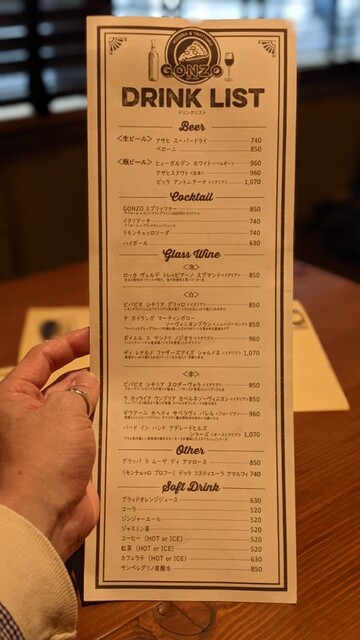 GONZO
DRINK LIST
ドリンクリスト
Beer
<生ビール> アサヒ スーパードライ 740
ペローニ 850
<瓶ビール> ヒューガルデン ホワイト <ベルギー> 960
アサヒスタウト <日本> 960
ビッラ アントニアーナ <イタリアン> 1,070
Cocktail
GONZO スプリッツァー 850
イタリアーナ 740
リモンチェッロソーダ 740
ハイボール 630
Glass Wine
<泡>
ロッカ ヴェルデ トレッビアーノ スプマンテ <イタリアン> 850
<白>
ピパピオ シチリア グリッロ <イタリアン> 850
テ カイランガ マーティンボロー
ソーヴィニオンブラン <ニュージーランド> 850
ボイエル エ サンドリ ノジオラ <イタリアン> 960
ディ レナルド ファザーズアイズ シャルドネ <イタリアン> 1,070
<赤>
ピパピオ シチリア ネロダーヴォラ <イタリアン> 850
ラ カッライア ウンブリア カベルネソーヴィニヨン <イタリアン> 850
ギウアーニ カヘティ サペラヴィ バレル <ジョージア> 960
バード イン ハンド アデレードヒルズ
シラーズ <オーストラリア> 1,070
Other
グラッパ ラ ムーザ ディ アマローネ 850
リモンチェッロ プロフーミ デッラ コスティエーラ アマルフィ 740
Soft Drink
ブラッドオレンジジュース 630
コーラ 520
ジンジャーエール 520
ジャスミン茶 520
コーヒー (HOT or ICE) 520
紅茶 (HOT or ICE) 520
カフェラテ (HOT or ICE) 630
サンペレグリノ炭酸水 850